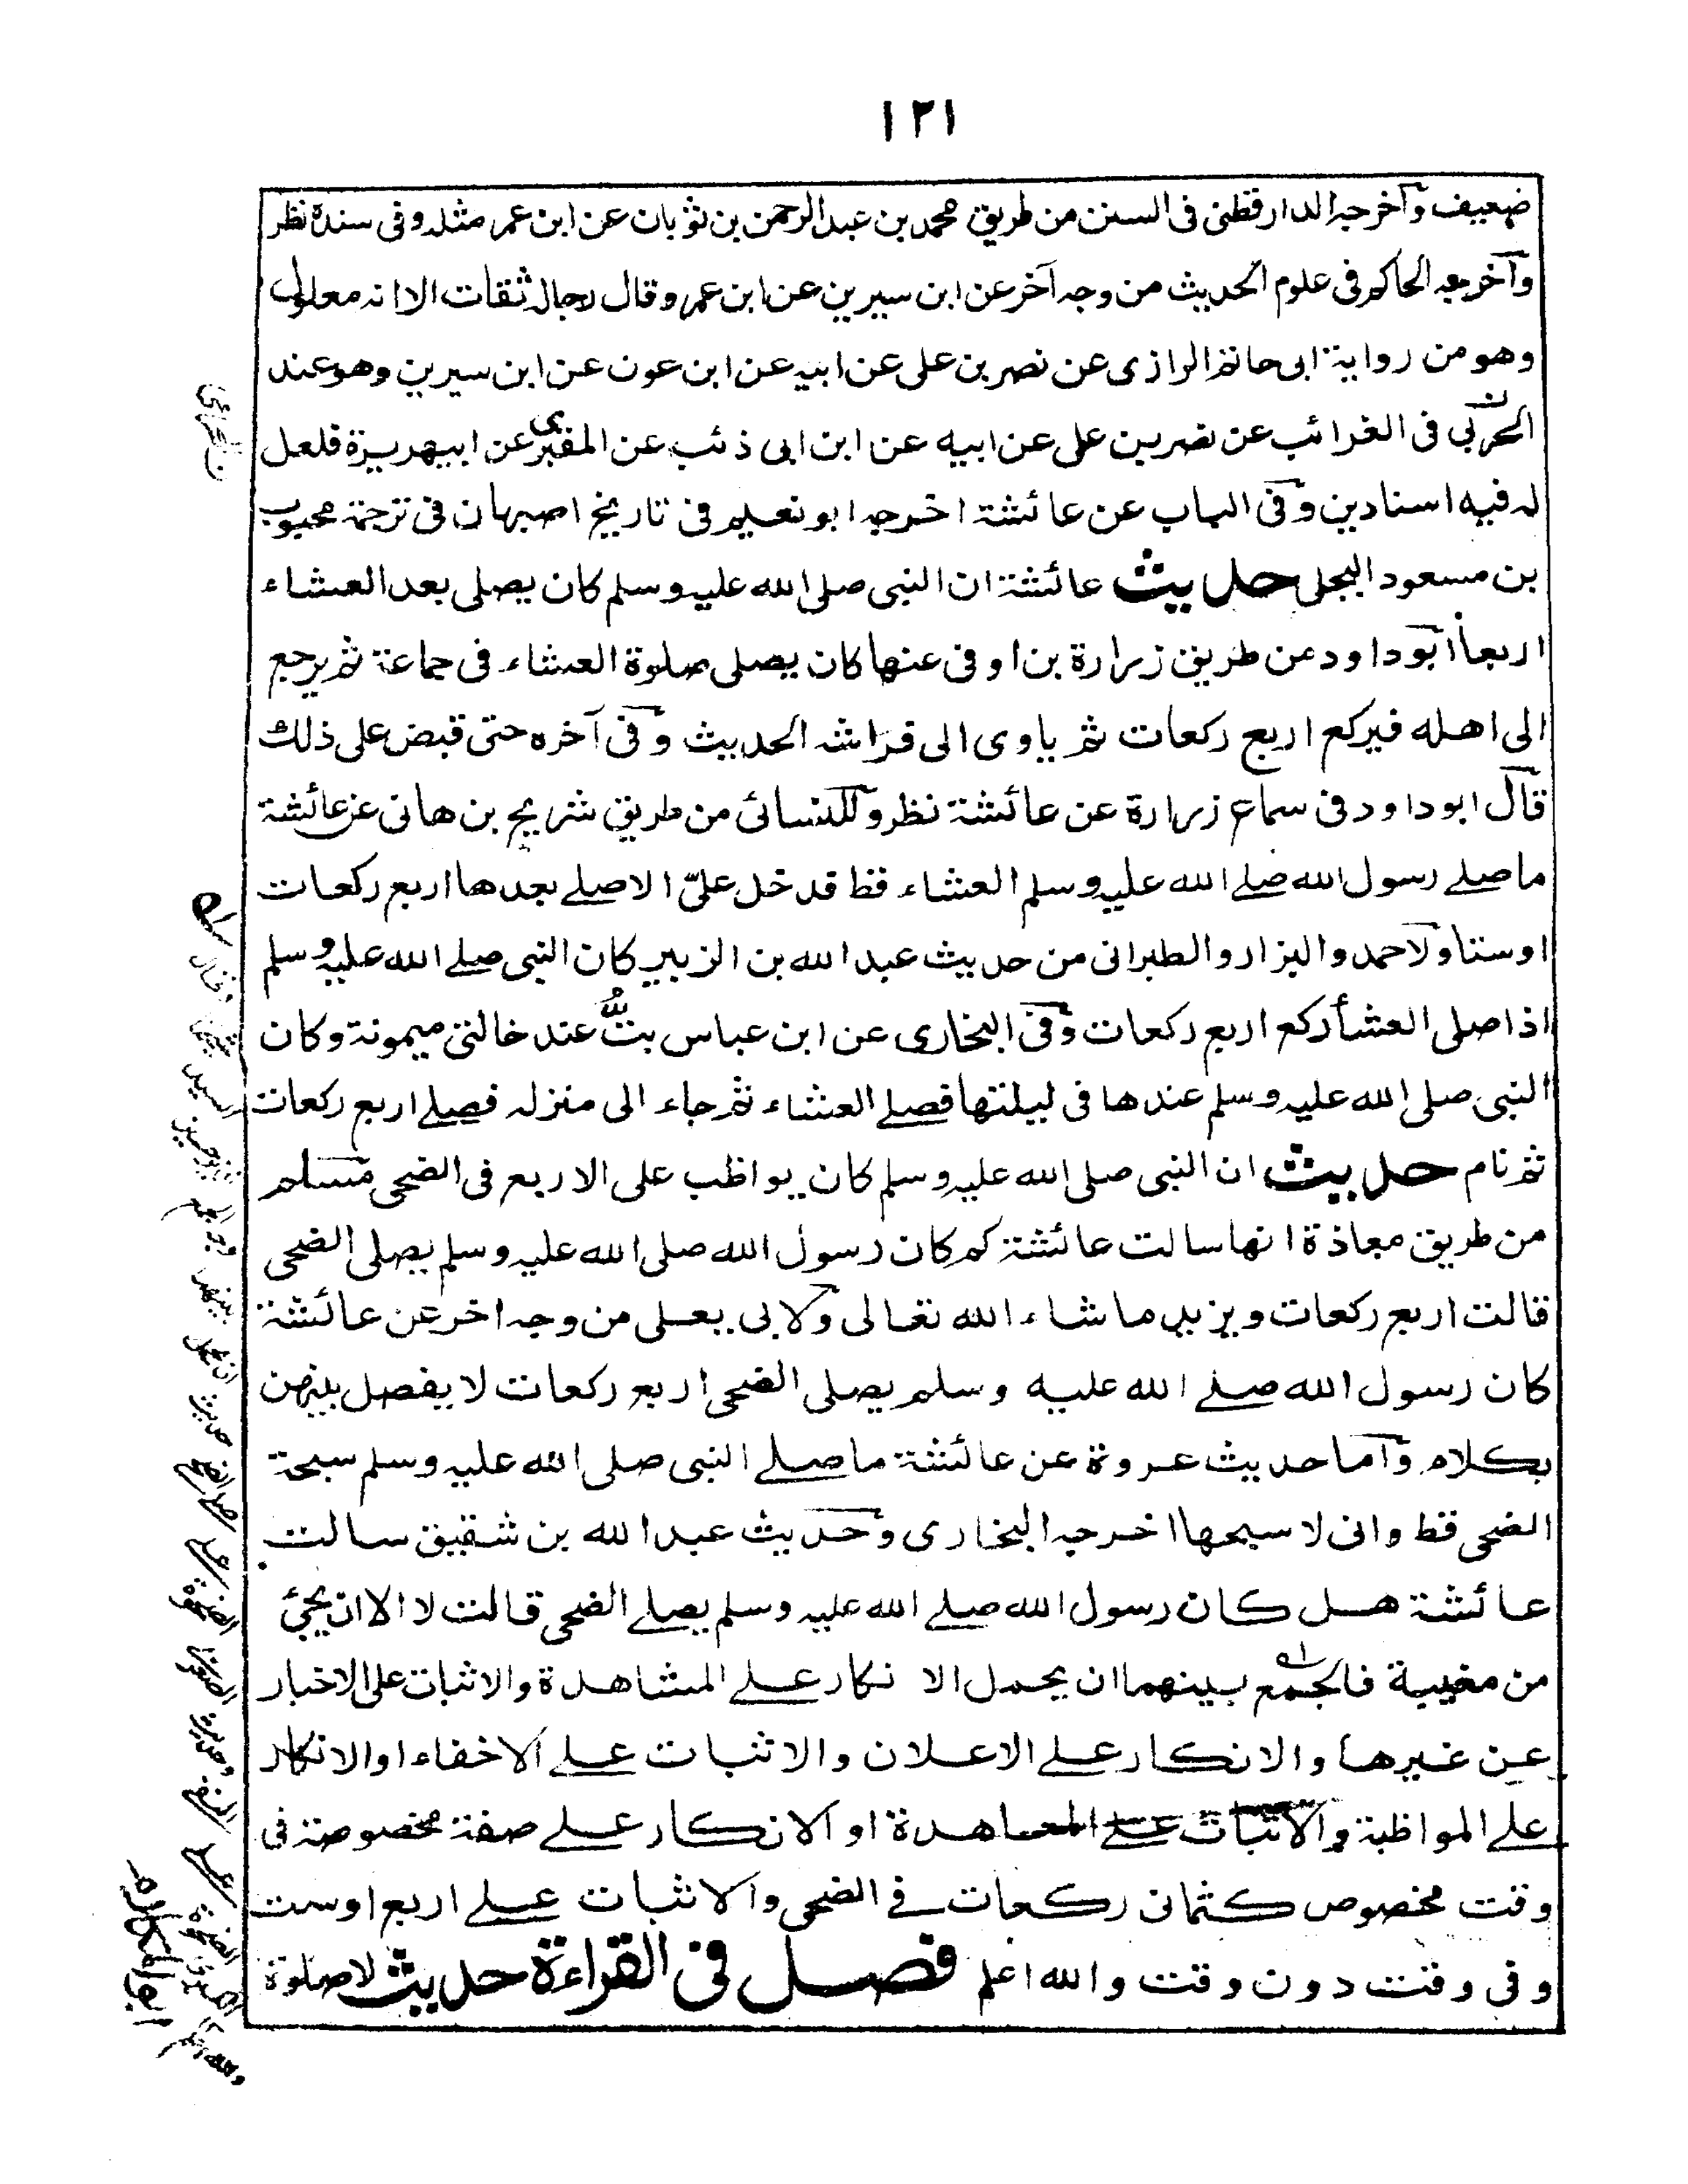 ١٢١
ضعيف وآخرجه الدارقطنى فى السنن من طريق محمد بن عبد الرحمن بن ثوبان عن ابن عمر مثله وفى سنده نظر
وآخرجه الحاكم فى علوم الحديث من وجه آخر عن ابن سيرين عن ابن عمر وقال رجاله ثقات الا انه معلول
وهو من رواية ابى حاتم الرازى عن نصر بن على عن ابيه عن ابن عون عن ابن سيرين وهو عند
الحربى فى الغرائب عن نصر بن على عن ابيه عن ابن ابى ذئب عن المقبرى عن ابيهريرة فلعل
له فيه اسنادين وفى الباب عن عائشة اخرجه ابو نعيم فى تاريخ اصبهان فى ترجمة محبوب
بن مسعود البجلى حديث عائشة ان النبى صلى الله عليه وسلم كان يصلى بعد العشاء
اربعاً ابوداود من طريق زرارة بن اوفى عنها كان يصلى صلوة العشاء فى جماعة ثم يرجع
الى اهله فيركع اربع ركعات ثم ياوى الى فراشه الحديث وفى آخره حتى قبض على ذلك
قال ابوداود فى سماع زرارة عن عائشة نظر وللنسائى من طريق شريح بن هانى عن عائشة
ما صلے رسول الله صلے الله عليه وسلم العشاء قط قد خل علىّ الا صلے بعدها اربع ركعات
اوستا ولاحمد والبزار والطبرانى من حديث عبد الله بن الزبير كان النبى صلے الله عليه وسلم
اذا صلى العشأ ركع اربع ركعات وفى البخارى عن ابن عباس بتُّ عند خالتى ميمونة وكان
النبى صلى الله عليه وسلم عندها فى ليلتها فصلے العشاء ثم جاء الى منزله فصلے اربع ركعات
ثم نام حديث ان النبى صلى الله عليه وسلم كان يواظب على الاربع فى الضحى مسلم
من طريق معاذة انها سالت عائشة كم كان رسول الله صلى الله عليه وسلم يصلى الضحى
قالت اربع ركعات ويزيد ما شاء الله تعالى ولابى يعلى من وجه اخر عن عائشة
كان رسول الله صلے الله عليه وسلم يصلى الضحى اربع ركعات لا يفصل بينهن
بكلام وآما حديث عروة عن عائشة ما صلے النبى صلى الله عليه وسلم سبحة
الضحى قط وانى لا سبحها اخرجه البخارى وحديث عبد الله بن شقيق سالت
عائشة هل كان رسول الله صلے الله عليه وسلم يصلے الضحى قالت لا الا ان يجئ
من مغيبة فالجمع بينهما ان يحمل الا نكار علے المشاهدة والاثبات على الاخبار
عن غيرها والانكار علے الاعلان والاثبات علے الاخفاء اوالانكار
علے المواظبة والاثبات علے المعاهدة او الانكار علے صفة مخصوصة فى
وقت مخصوص كثمانى ركعات فے الضحى والاثبات علے اربع اوست
وفى وقت دون وقت والله اعلم فصل فى القراءة حديث لاصلوة